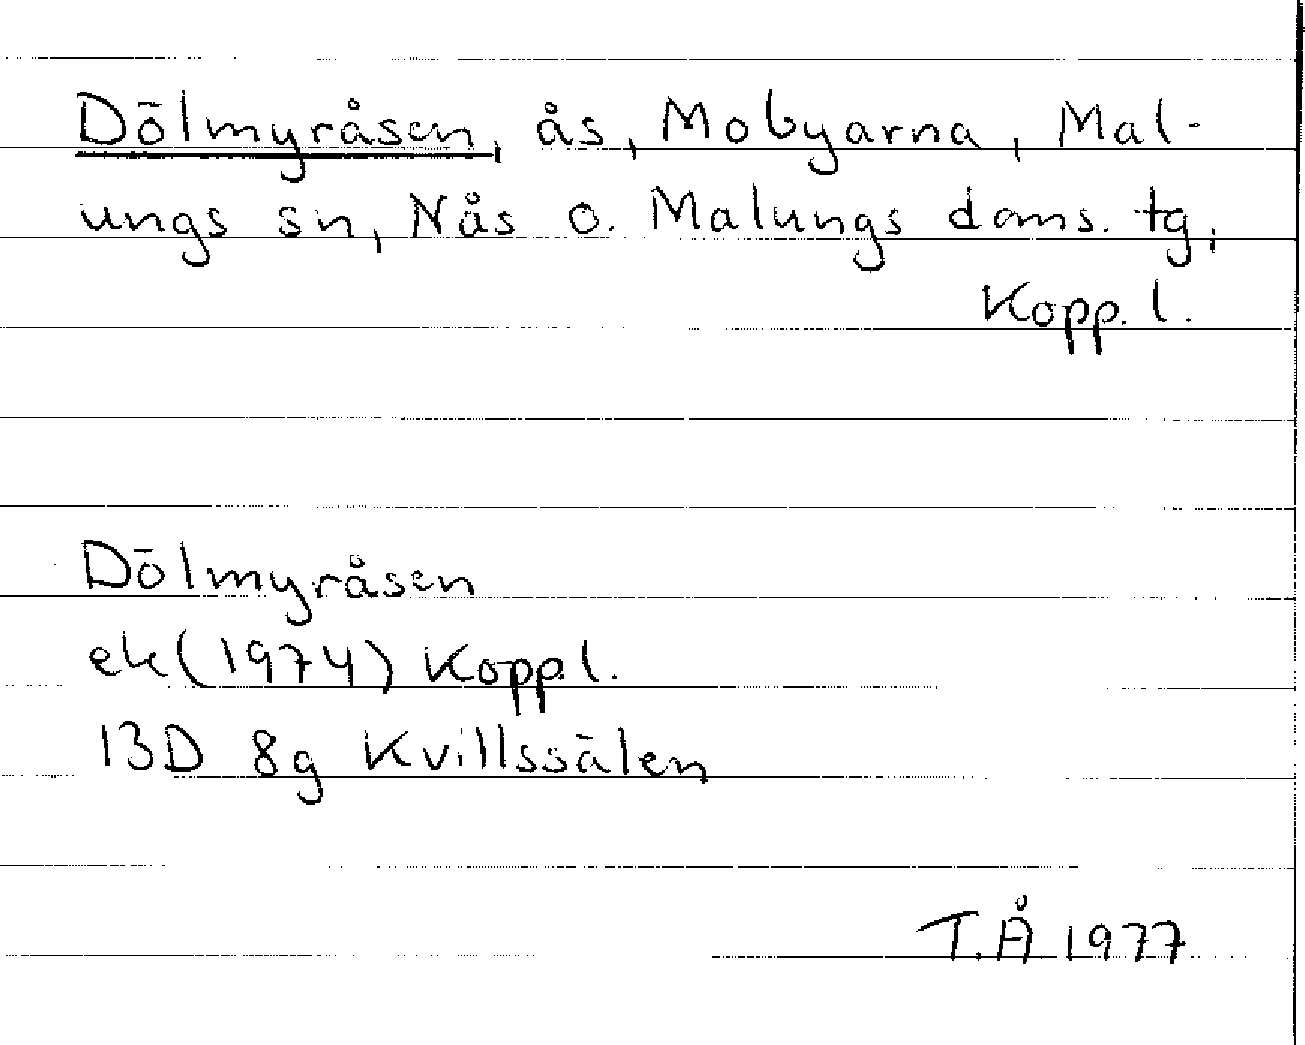 Dölmyråsen, ås, Mobyarna, Mal-
ungs sn, Nås o. Malungs doms. tg,
Kopp. l.
Dölmyråsen
ek (1974) Kopp l.
13D 8g Kvillssälen
T.Å 1977